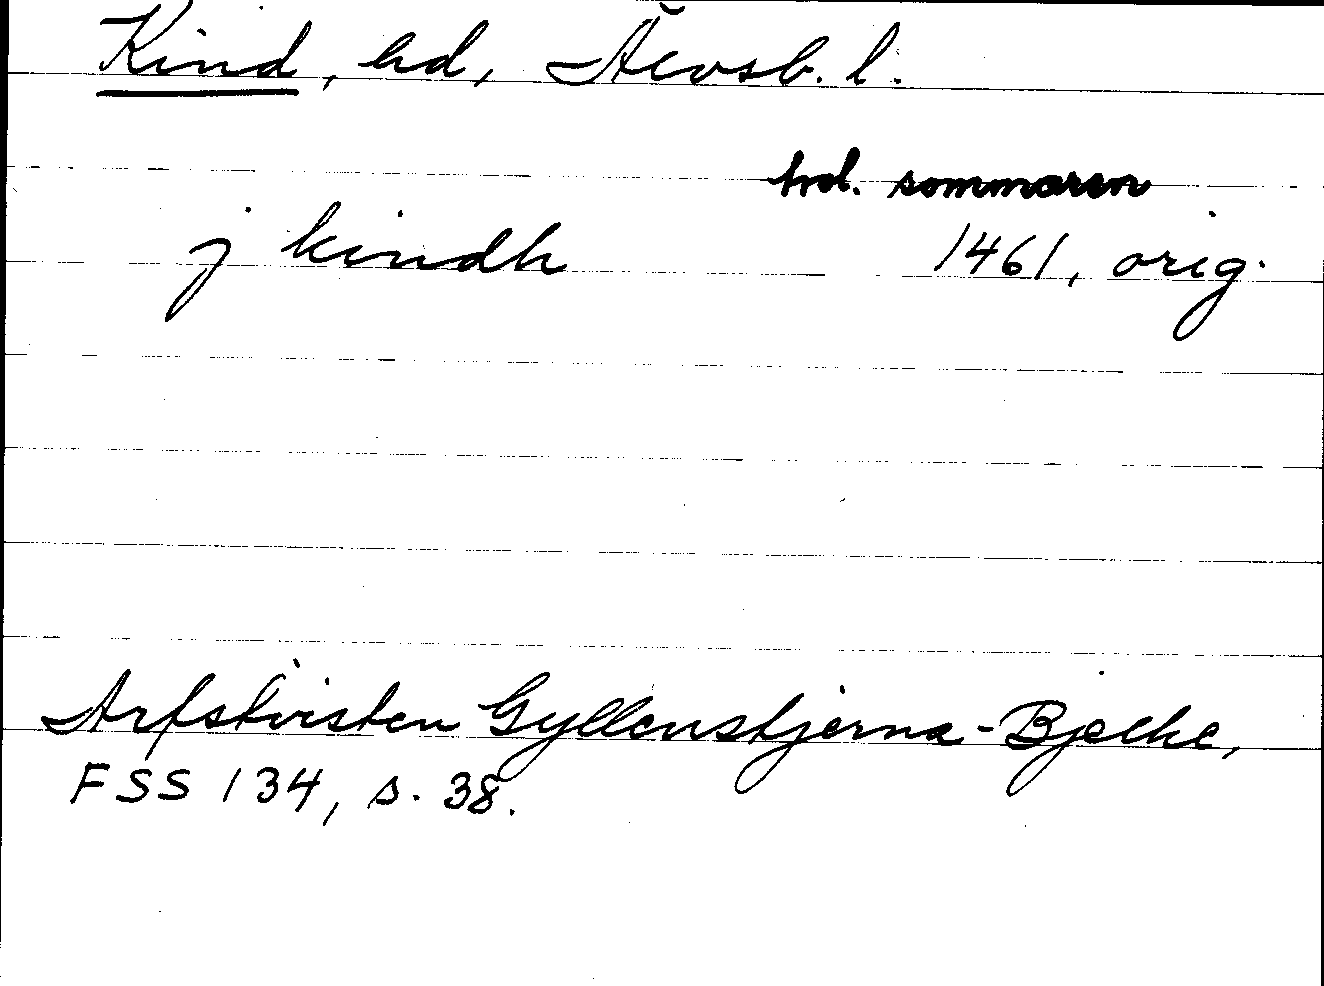 Kind, hd, Älvsb. l.
trol. sommaren
j kindh 1461, orig.
Arfstvisten Gyllenstjerna-Bjelke,
FSS 134, s. 38.